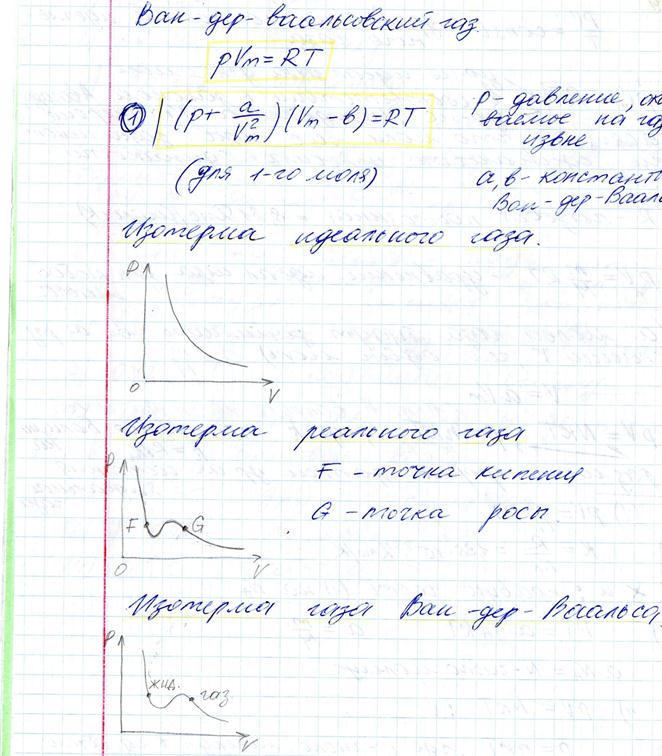 Ван-дер-ваальсовский газ.
pVm = RT
① (p + a/V²m)(Vm - в) = RT
p - давление, ока
ваемое на газ
извне
(для 1-го моля)
а, в - констант
Ван-дер-Ваал
Изотерма идеального газа.
P
O V
Изотерма реального газа
P
F - точка кипения
G - точка росы.
F G
O V
Изотерма газа Ван-дер-Ваальса
P
жид. газ
V